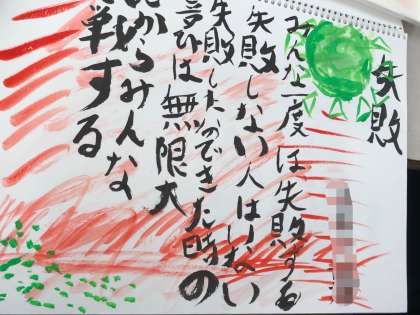 失敗
みんな一度は失敗する
失敗しない人はいない
失敗したのでできた時の
喜びは無限大
だからみんな
挑戦する